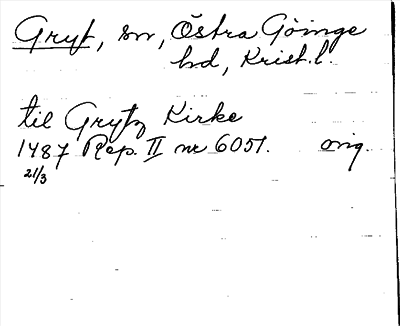 Gryt, sn, Östra Göinge
hd, Krist. l.
til Grytz Kirke
1487 Rep. II nr 6051. orig.
21/3